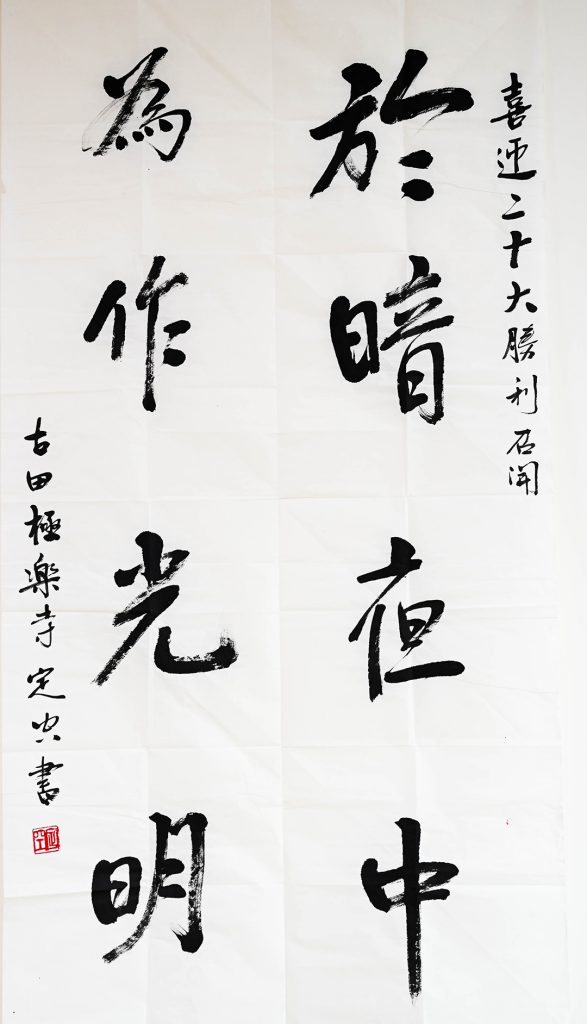 喜迎二十大勝利召開
於暗夜中
為作光明
古田極楽寺定空書